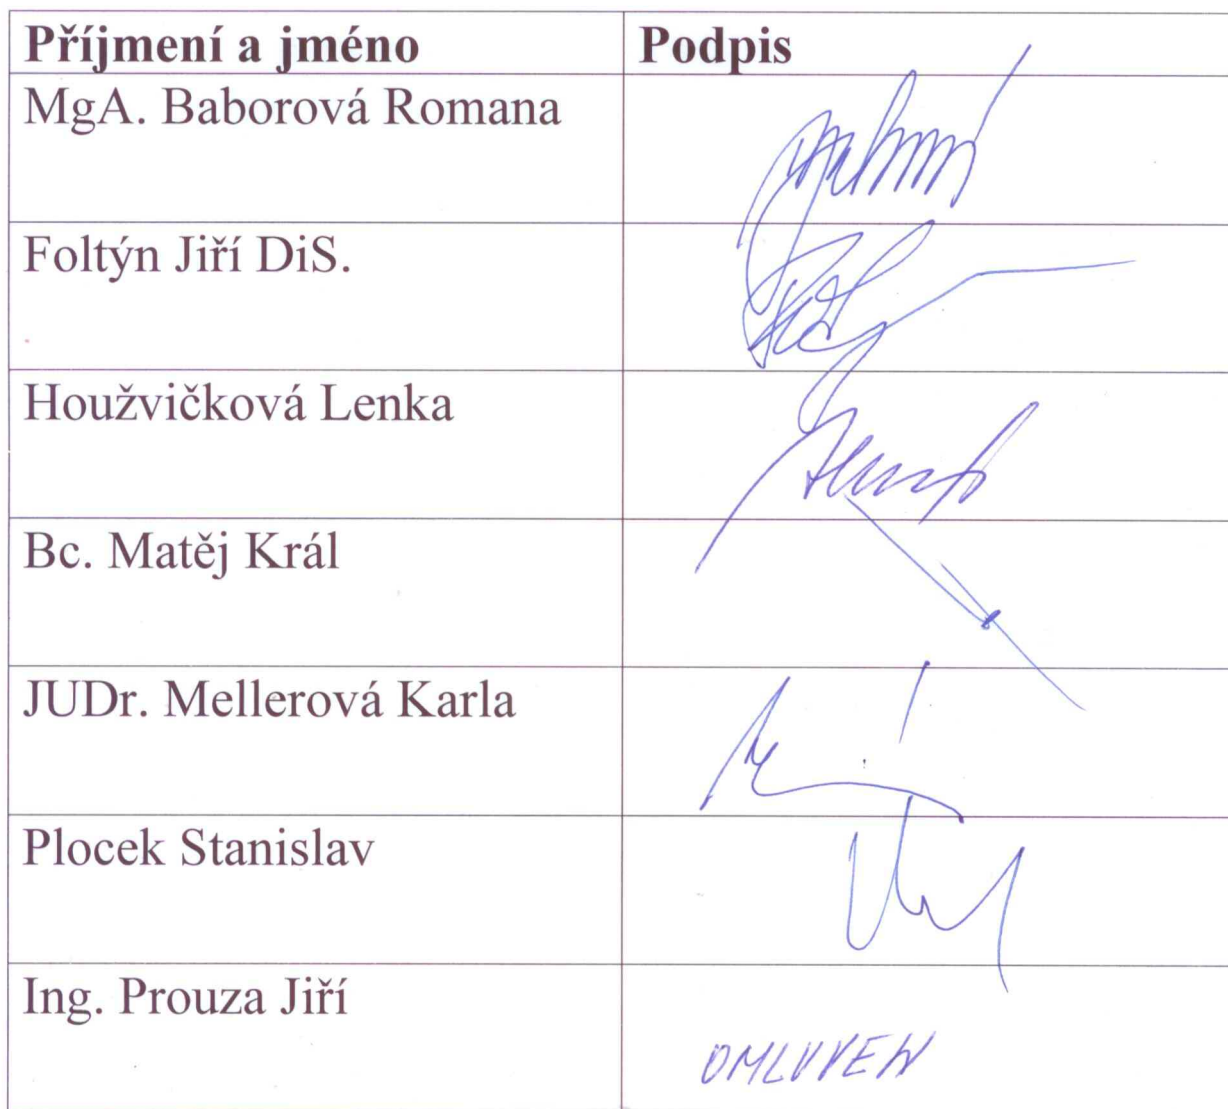 Příjmení a jméno Podpis
MgA. Baborová Romana
Foltýn Jiří DiS.
Houžvičková Lenka
Bc. Matěj Král
JUDr. Mellerová Karla
Plocek Stanislav
Ing. Prouza Jiří
OMLUVEN